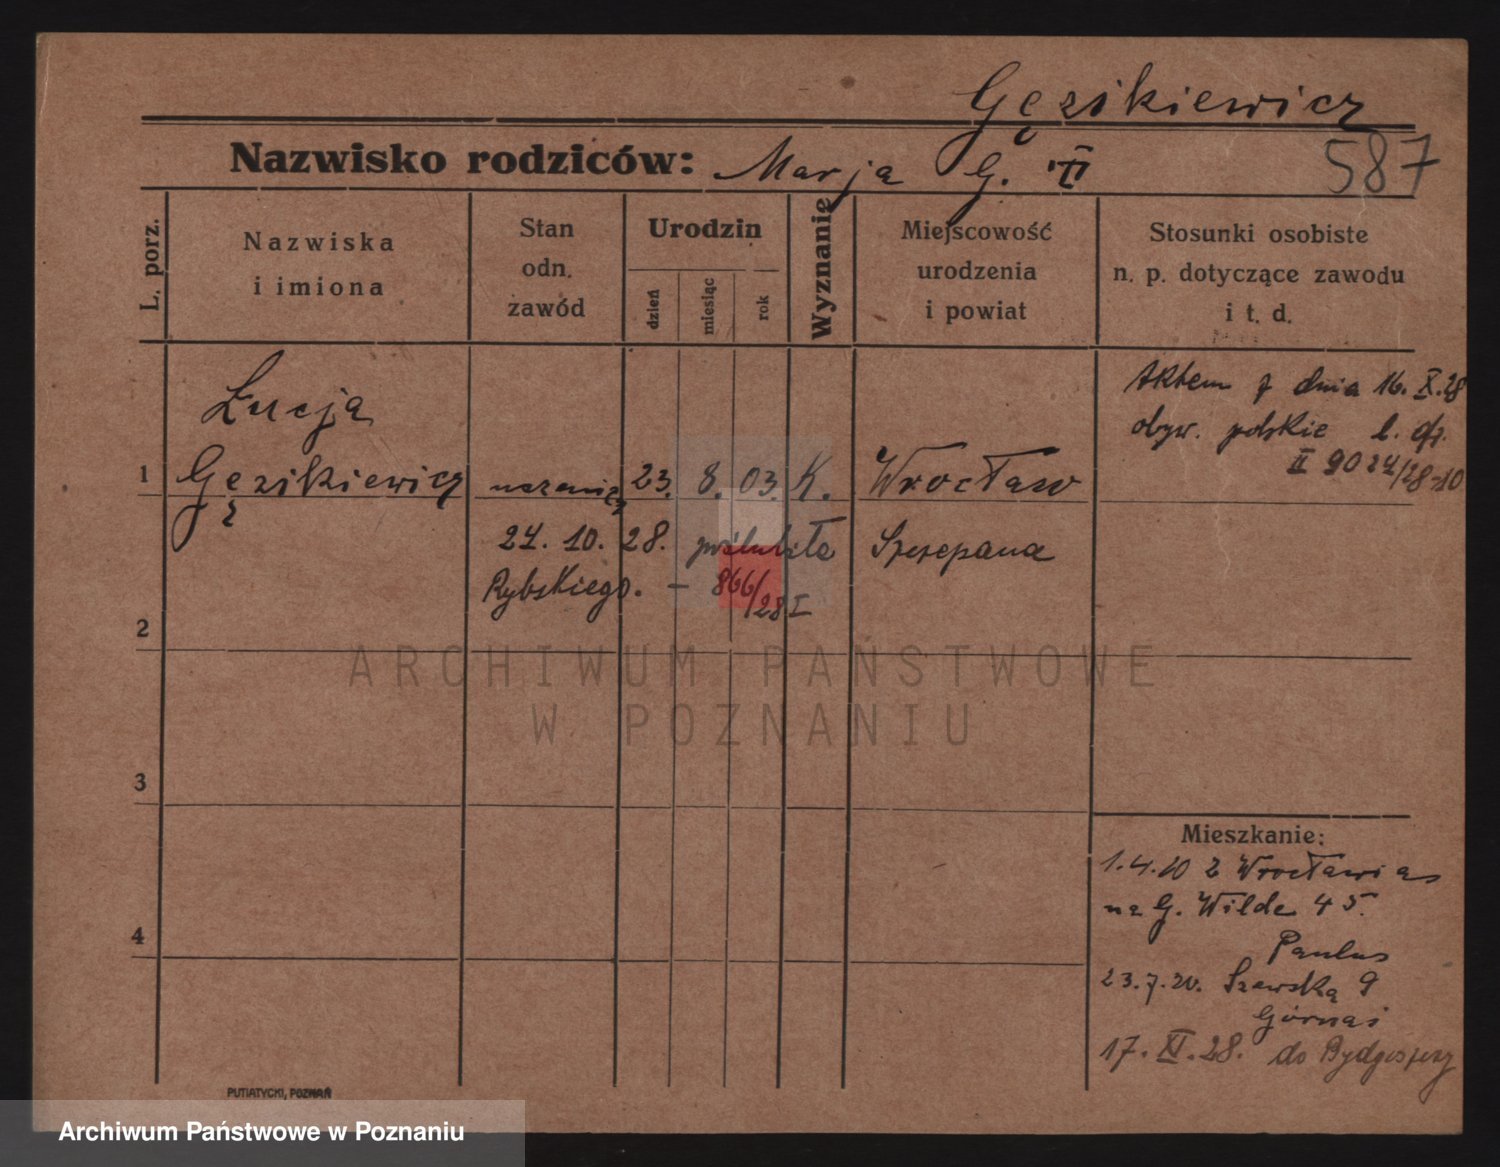 Gęzikiewicz
587
Nazwisko rodziców: Marja G.
L. porz.
Nazwiska
i imiona
Stan
odn.
zawód
Urodzin
dzień
miesiąc
rok
Wyznanie
Miejscowość
urodzenia
i powiat
Stosunki osobiste
n. p. dotyczące zawodu
i t. d.
Aktem z dnia 16. X. 28
obyw. polskie l. dz.
II 9024/28
Łucja
1 Gęzikiewicz 23. 8. 03. K. Wrocław
24. 10. 28. poślubiła Szczepana
Rybskiego. – 866/28 I
2
3
4
Mieszkanie:
1.4.10 z Wrocławia
na G. Wilde 45.
Paulus
23.7.20. Szewska 9
Górnaś
17. XI. 28. do Bydgoszczy
PUTIATYCKI, POZNAŃ
ARCHIWUM PAŃSTWOWE
W POZNANIU
Archiwum Państwowe w Poznaniu